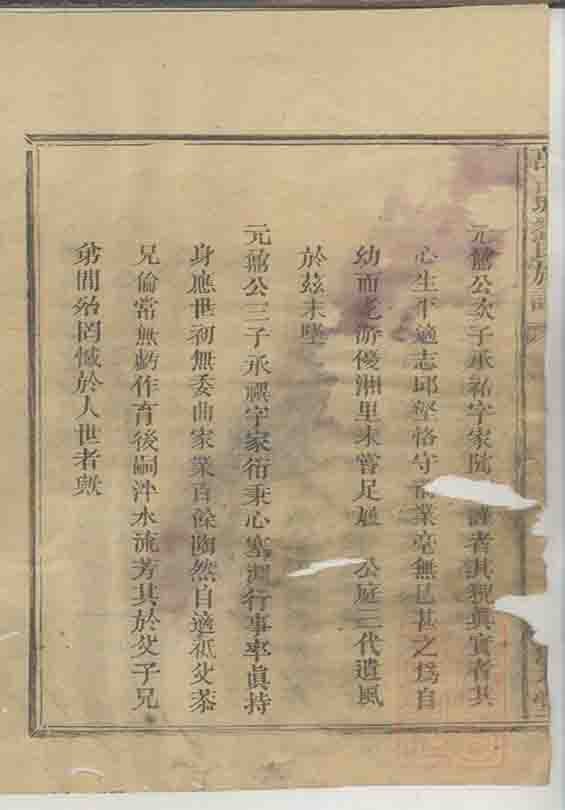 元鼐公次子承祐字家
者其貌眞實者其
心生平適志邱壑恪守
業毫無已甚之爲自
幼而老游優湘里未嘗足履
公庭三代遺風
於茲未墜
元鼐公三子承禩字家衍秉心塞淵行事率眞持
身應世初無委曲家業自餘陶然自適祗父恭
兄倫常無虧作育後嗣泮水流芳其於父子兄
弟間殆罔憾於人世者歟
氏族譜